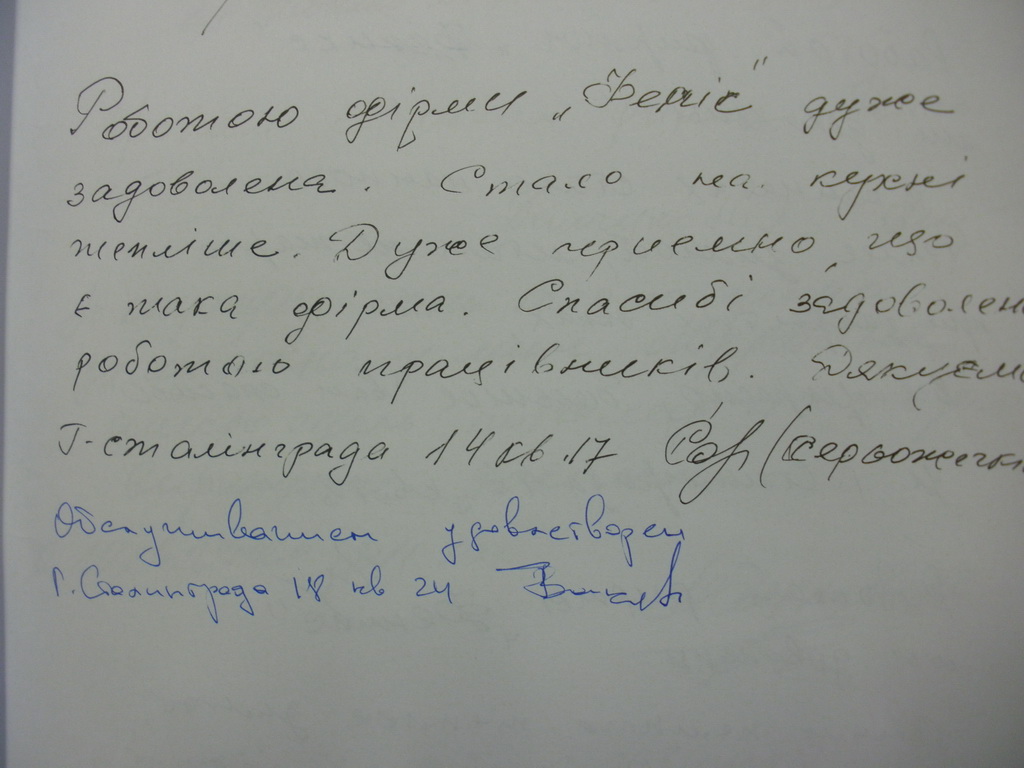 Роботою фірми „Фенікс" дуже
задоволена. Стало на кухні
тепліше. Дуже приємно, що
є така фірма. Спасибі задоволен
роботою працівників. Дякуємо
Г-Сталінграда 14 кв. 17
Обслуживанием удовлетворен
Г. Сталинграда 18 кв 24